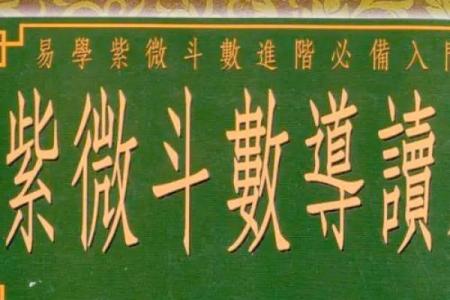 易學紫微斗數進階必備入門
紫微斗數導讀